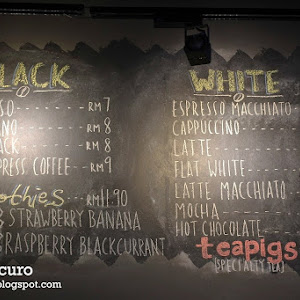 LACK
SO RM 7
NO RM 8
ACK RM 8
PRESS COFFEE RM 9
othies RM 11.90
STRAWBERRY BANANA
RASPBERRY BLACKCURRANT
WHITE
ESPRESSO MACCHIATO
CAPPUCCINO
LATTE
FLAT WHITE
LATTE MACCHIATO
MOCHA
HOT CHOCOLATE
teapigs
(SPECIALTY TEA)
curo
blogspot.com